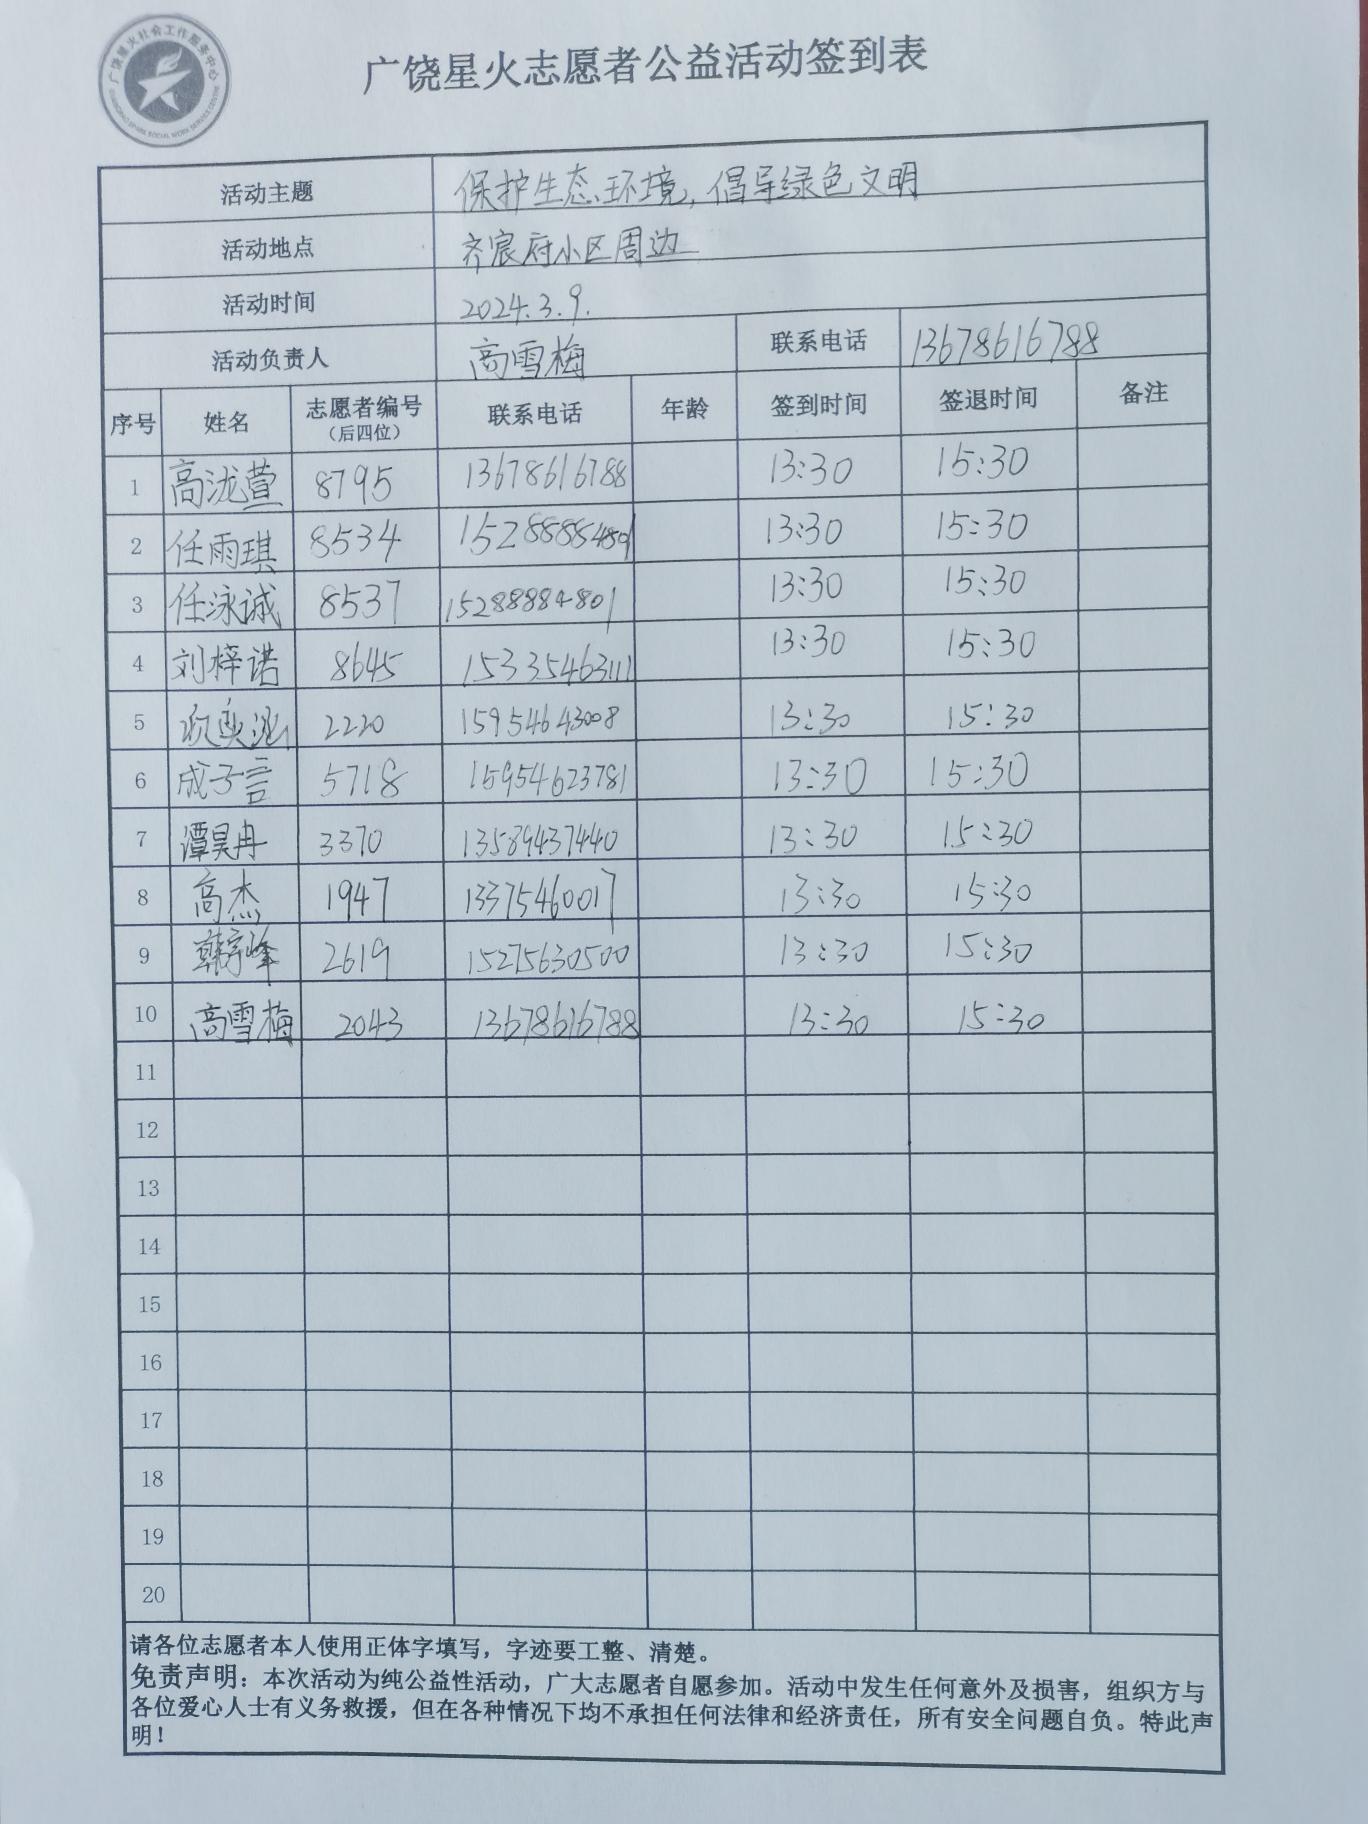 广饶星火社会工作服务中心
GUANGRAO SPARK SOCIAL WORK SERVICE CENTRE
广饶星火志愿者公益活动签到表
活动主题 保护生态环境，倡导绿色文明
活动地点 齐宸府小区周边
活动时间 2024.3.9.
活动负责人 高雪梅 联系电话 13678616788
序号 姓名 志愿者编号（后四位） 联系电话 年龄 签到时间 签退时间 备注
1 高泷萱 8795 13678616788 13:30 15:30
2 任雨琪 8534 13:30 15:30
3 任泳诚 8537 15288884801 13:30 15:30
4 刘梓诺 8645 15335463111 13:30 15:30
5 2220 15954643008 13:30 15:30
6 成子言 5718 15954623781 13:30 15:30
7 谭昊冉 3370 13589437440 13:30 15:30
8 高杰 1947 13375460017 13:30 15:30
9 2619 15275630500 13:30 15:30
10 高雪梅 2043 13678616788 13:30 15:30
11
12
13
14
15
16
17
18
19
20
请各位志愿者本人使用正体字填写，字迹要工整、清楚。
免责声明：本次活动为纯公益性活动，广大志愿者自愿参加。活动中发生任何意外及损害，组织方与
各位爱心人士有义务救援，但在各种情况下均不承担任何法律和经济责任，所有安全问题自负。特此声
明！